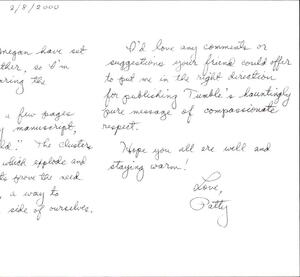 2/8/2000
megan have set
ther, so I'm
aring the
a few pages
y manuscript,
ld." The clusters
which explode and
ts prove the need
a way to
side of ourselves.
I'd love any comments or
suggestions your friend could offer
to put me in the right direction
for publishing Tumble's hauntingly
pure message of compassionate
respect.
Hope you all are well and
staying warm!
Love,
Patty